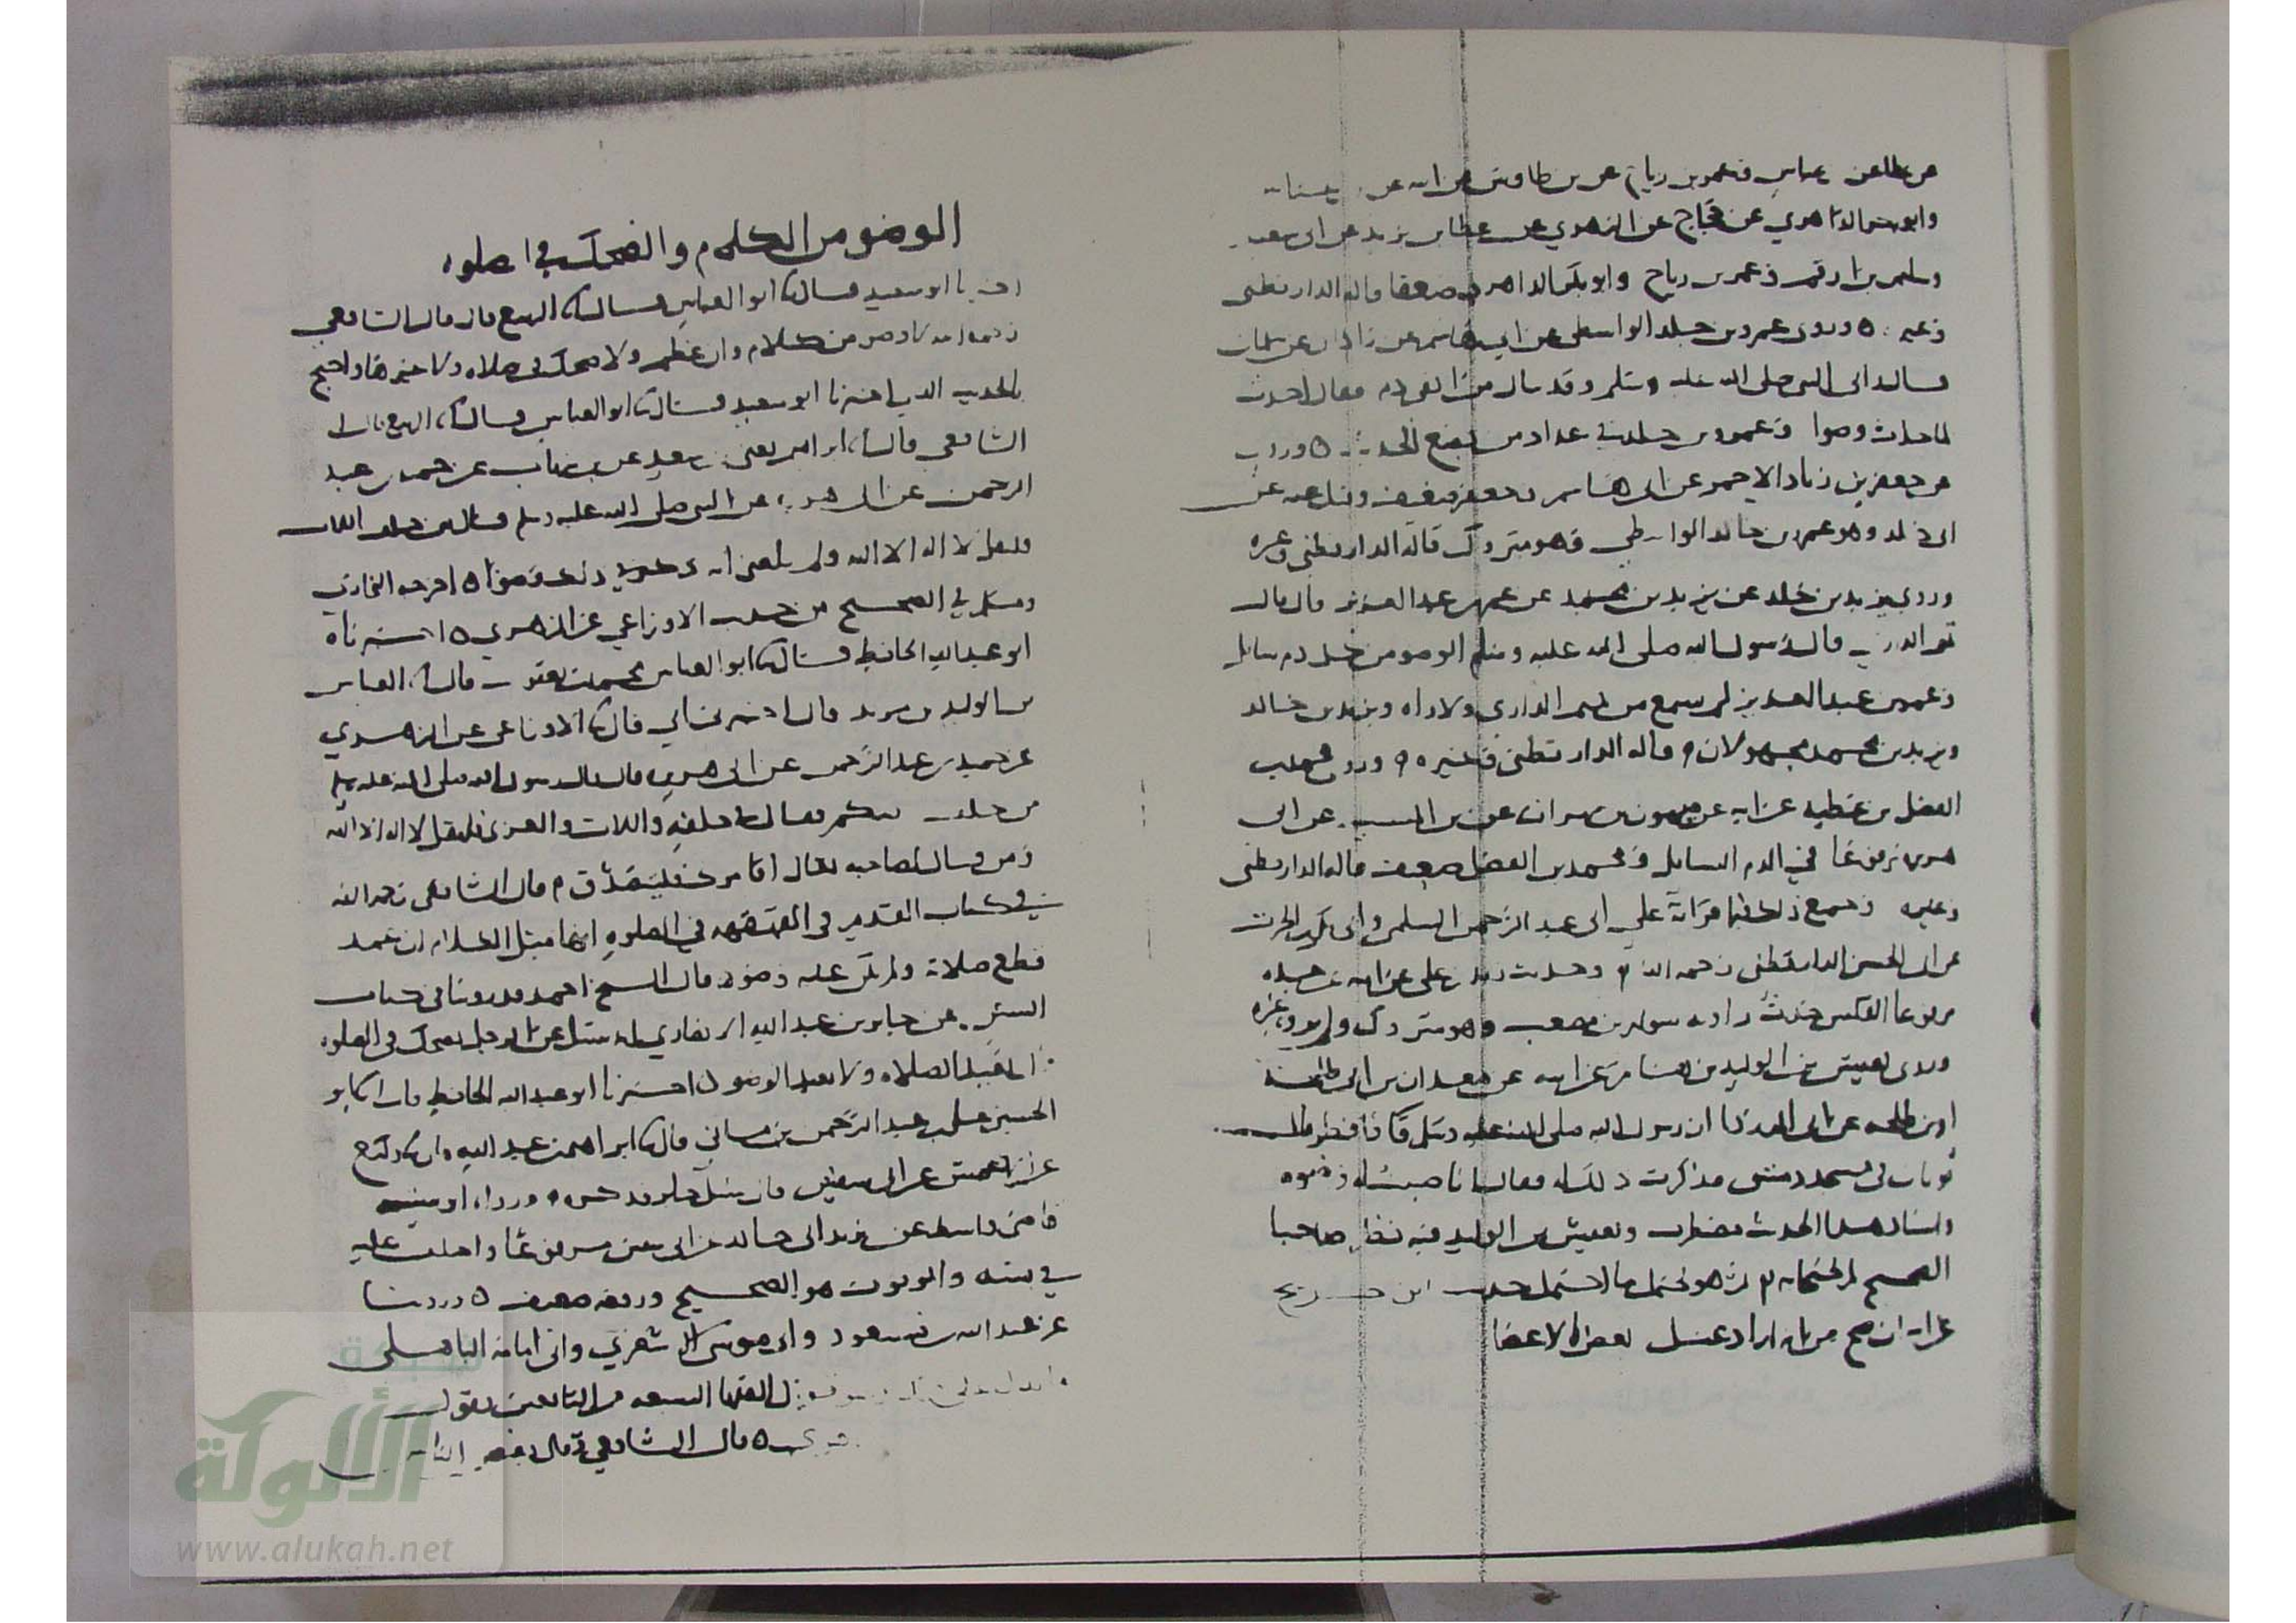 عن عطا عن عباس وعمر بن رياح عن بن طاوس عن ابيه عن
وابو بكر الداهري عن حجاج عن الزهري عن عطا بن يزيد عن ابي سعيد
وسليمن بن ارقم وعمر بن رياح وابو بكر الداهري ضعفا قاله الدارقطني
وغيره وروى عمرو بن خلد الواسطي عن ابي هاشم عن زاذان عن سلمان
قال راني النبي صلى الله عليه وسلم وقد سال من انفي دم فقال احدث
لما حدث وضوا وعمرو بن خلد في عداد من يضع الحديث وروى
عن جعفر بن زياد الاحمر عن ابي هاشم وجعفر ضعيف وقيل عنه عن
ابي خلد وهو عمرو بن خالد الواسطي وهو متروك قاله الدارقطني وغيره
وروى يزيد بن خلد عن يزيد بن محمد عن عمر بن عبد العزيز قال قال
تميم الداري قال رسول الله صلى الله عليه وسلم الوضو من كل دم سايل
وعمر بن عبد العزيز لم يسمع من تميم الداري ولا راه ويزيد بن خالد
ويزيد بن محمد مجهولان قاله الدارقطني وغيره وروى محمد بن
الفضل بن عطيه عن ابيه عن ميمون بن مهران عن بن المسيب عن ابي
هريره مرفوعا في الدم السايل ومحمد بن الفضل ضعيف قاله الدارقطني
وغيره وجميع ذلك فيما قراته علي ابي عبد الرحمن السلمي وابي بكر بن الحرث
عن ابي الحسن الدارقطني رحمه الله وحديث زيد بن علي عن ابيه عن جده
مرفوعا القلس حدث رواه سوار بن مصعب وهو متروك ولم يروه غيره
وروى يعيش بن الوليد بن هشام عن ابيه عن معدان بن ابي طلحه
او بن طلحه عن ابي الدردا ان رسول الله صلى الله عليه وسلم قا فافطر فلقيت
ثوبان في مسجد دمشق فذكرت ذلك له فقال انا صببت له وضوه
واسناد هذا الحديث مضطرب ويعيش بن الوليد فيه نظر صاحبا
الصحيح لم يحتجا به ثم هو يحتمل ما احتمل حديث ابن جريج
غيرانه ان صح من انه اراد غسل بعض الاعضا
الوضو من الكلام والضحك في الصلوه
اخبرنا ابو سعيد قال نا ابو العباس قال نا الربيع قال قال الشافعي
رحمه الله لا وضو من كلام وان عظم ولا ضحك في صلاه ولا غيرها واحتج
بالحديث الذي اخبرنا ابو سعيد قال نا ابو العباس قال نا الربيع قال نا
الشافعي قال نا ابراهيم يعني بن سعد عن بن شهاب عن حميد بن عبد
الرحمن عن ابي هريره عن النبي صلى الله عليه وسلم قال من حلف باللات
فليقل لا اله الا الله ولم يبلغني انه ذكر في ذلك وضوا اخرجه البخاري
ومسلم في الصحيح من حديث الاوزاعي عن الزهري اخبرناه
ابو عبد الله الحافظ قال نا ابو العباس محمد بن يعقوب قال نا العباس
بن الوليد بن مزيد قال اخبرني ابي قال نا الاوزاعي عن الزهري
عن حميد بن عبد الرحمن عن ابي هريره قال قال رسول الله صلى الله عليه وسلم
من حلف منكم فقال في حلفه واللات والعزى فليقل لا اله الا الله
ومن قال لصاحبه تعال اقامرك فليتصدق قال الشافعي رحمه الله
في كتاب القديم في القهقهه في الصلوه انها مثل الكلام ان تعمد
قطع صلاته ولم يكن عليه وضوء قال الشيخ احمد قد روينا في كتاب
السنن عن جابر بن عبد الله الانصاري انه سئل عن الرجل يضحك في الصلوه
قال يعيد الصلاه ولا يعيد الوضو اخبرنا ابو عبد الله الحافظ قال نا ابو
الحسين علي بن عبد الرحمن بن ماتي قال نا ابراهيم بن عبد الله قال نا وكيع
عن الاعمش عن ابي سفيان قال سئل جابر فذكره ورواه ابو شيبه
قاضي واسط عن يزيد ابي خالد عن ابي سفين مرفوعا واختلف عليه
في متنه والموقوف هو الصحيح ورفعه ضعيف وروينا
عن عبد الله بن مسعود وابي موسى الاشعري وابي امامه الباهلي
الفقها السبعه من التابعين بقول
قال الشافعي وقال بعض الناس
شبكة
الألوكة
www.alukah.net